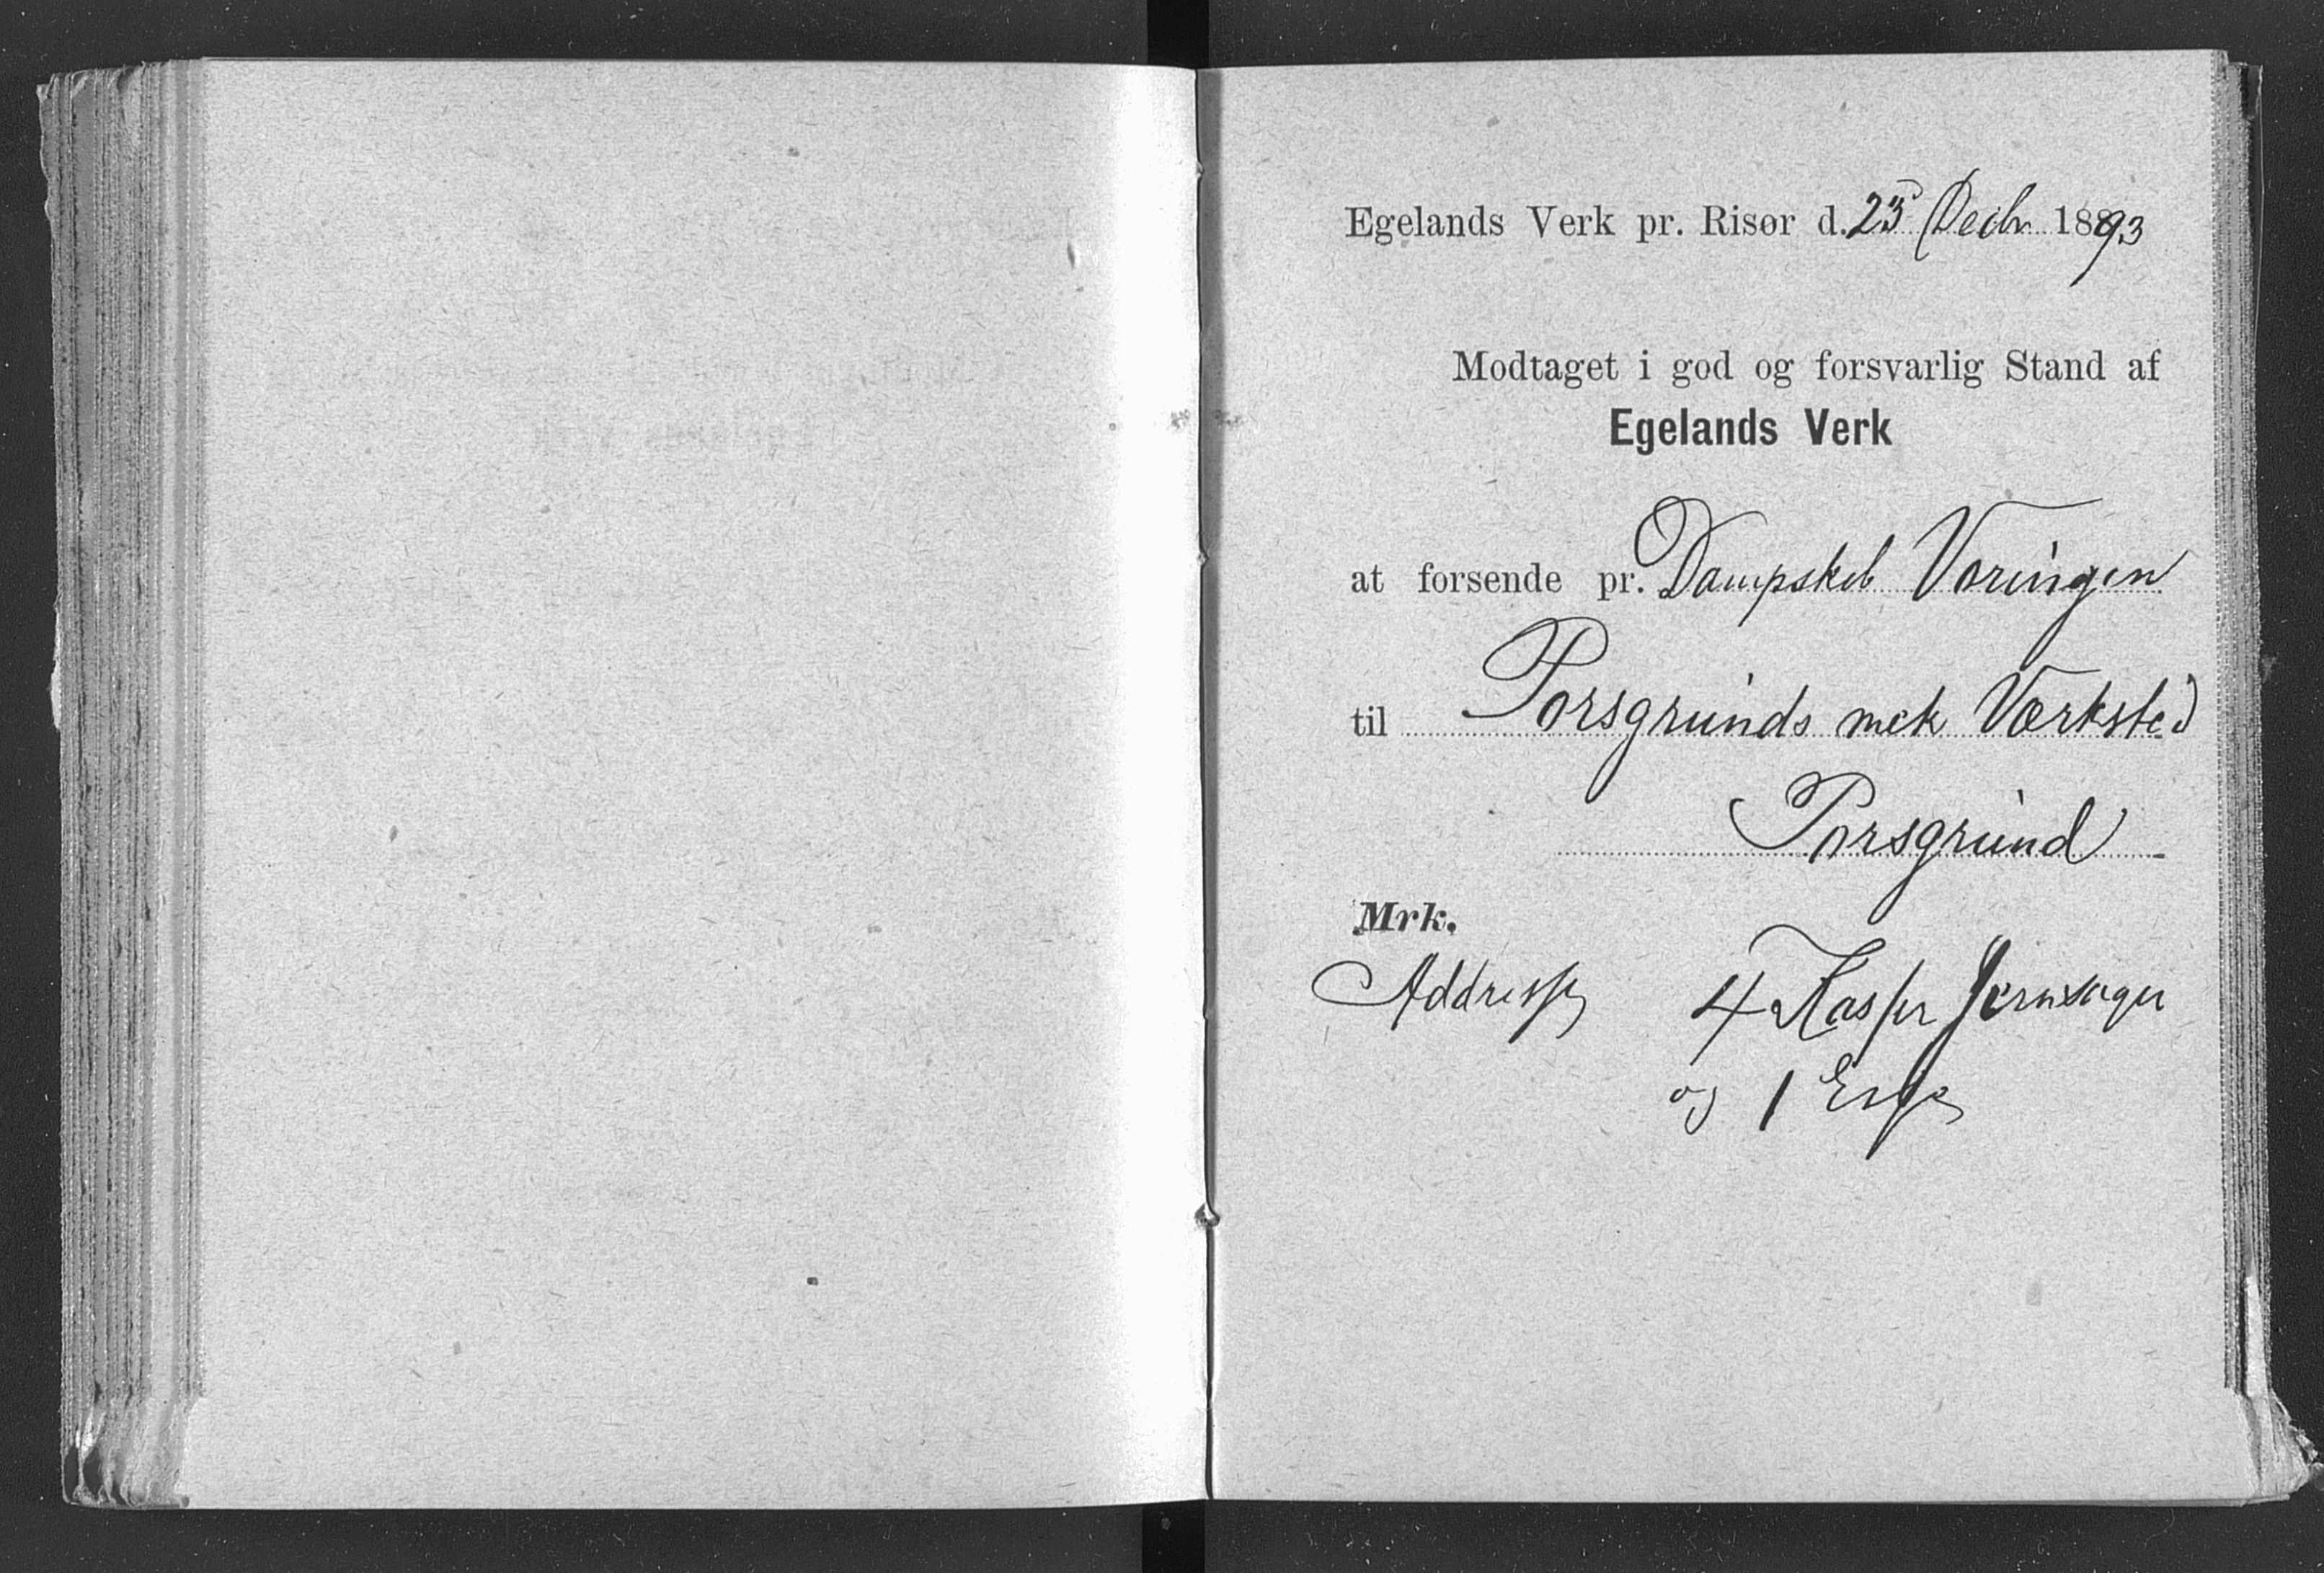 Egelands Verk pr. Risør d. 23 Decbr 1893
Modtaget i god og forsvarlig Stand af
Egelands Verk
at forsende pr. Dampskib Vøringen
til Porsgrunds mek Værksted
Porsgrund
Mrk.
Addresse 4 Kasser Jernsager
og 1 Esse